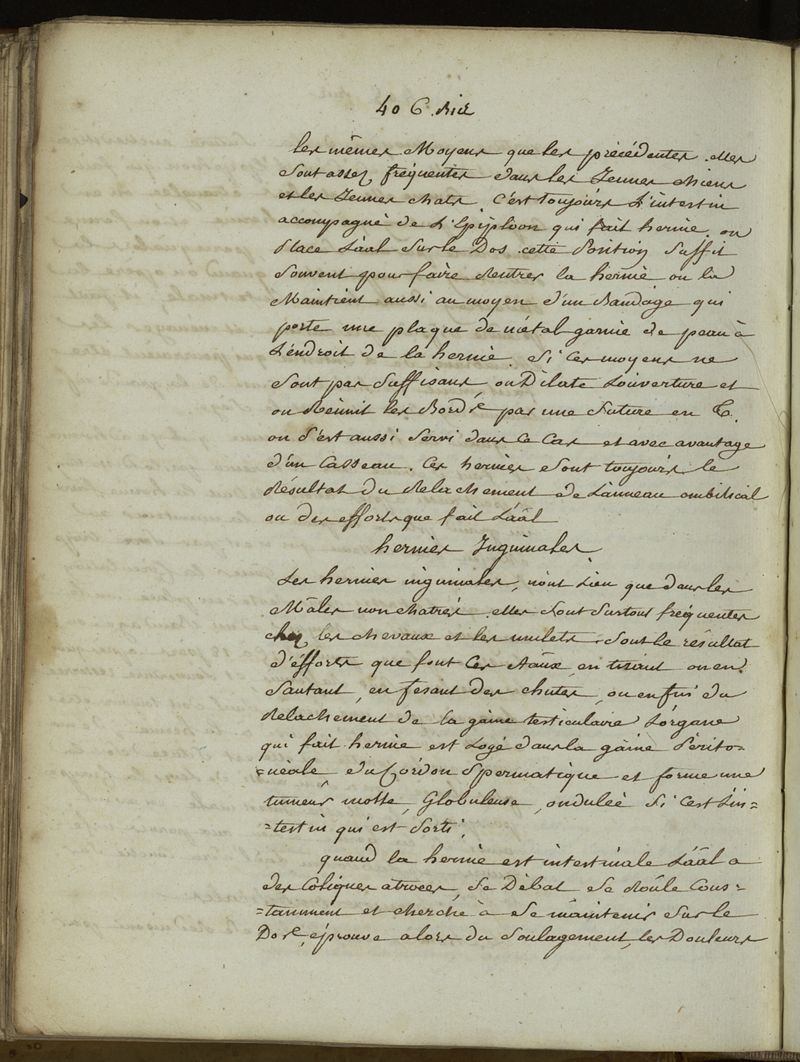 406.
les mêmes Moyens que les précédentes. elles
Sont assez fréquentes dans les Jeunes chiens
et les Jeunes chats. C'est toujours L'intestin
accompagné de L'Epiploon qui fait hernie. on
place L'aãl Sur le Dos. cette Position Suffit
Souvent pour faire Rentrer la hernie on la
Maintient aussi au moyen d'un Bandage qui
porte une plaque de métal garnie de peau à
L'endroit de la hernie. Si ces moyens ne
Sont pas Suffisans on Dilate L'ouverture et
on Réunit les Bords par une Suture en G.
on S'est aussi Servi dans ce Cas et avec avantage
d'un Casseau. Ces hernies Sont toujours le
Résultat du Relachement de L'anneau ombilical
ou des efforts que fait L'aãl
hernies Inguinales.
Les hernies inguinales, n'ont Lieu que dans les
Mâles non chatrés. elles Sont Surtout fréquentes
chez les chevaux et les mulets. Sont le résultat
d'éfforts que font Ces aãux, en tirant ou en
Sautant, en fesant des chutes, ou enfin du
Relachement de la gaîne testiculaire L'organe
qui fait hernie est Logé dans la gaîne Périto-
=néale, du Cordon Spermatique et forme une
tumeur molle, Globuleuse, ondulée Si C'est L'in=
=testin qui est Sorti.
quand la hernie est intestinale L'aãl a
des Coliques atroces, Se Débat Se Roule Cons=
=tamment et cherche à Se maintenir Sur le
Dos, éprouve alors du Soulagement, les Douleurs